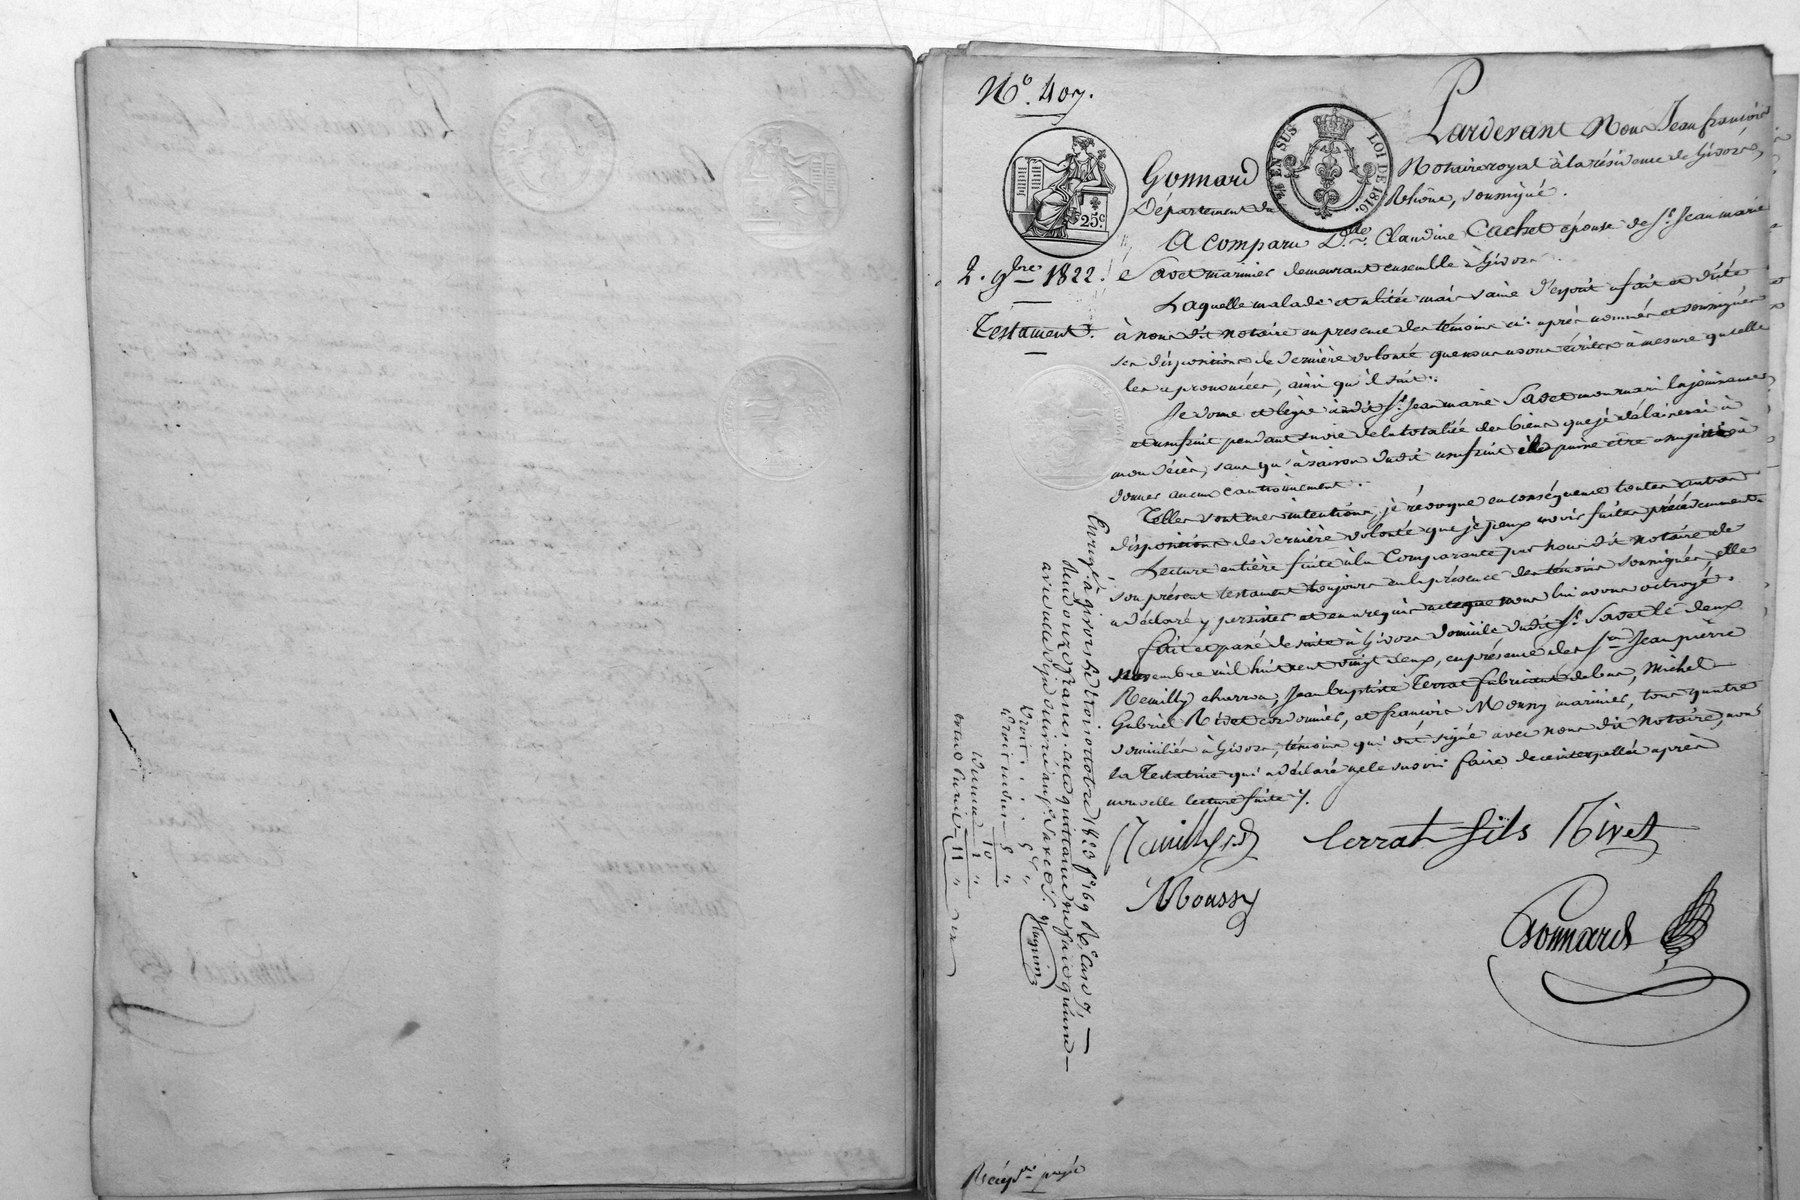 N.º 407.
Pardevant Nous Jean françois
Gonnard Notaire royal à la résidence de Givors,
Département du Rhône, soussigné.
¼ EN SUS
LOI DE 1816.
25.c
A comparu D.me Claudine Cachet épouse de S.r Jean marie
2. 9bre 1822.
Savet marinier demeurant ensemble à Givors.
Laquelle malade et alitée mais saine d'esprit a fait et dicté
Testament.
à nous dit notaire en presence des témoins ci-après nommés et soussignés
ses dispositions de dernière volonté que nous avons écrites à mesure qu'elle
les a prononcées, ainsi qu'il suit:
Je donne et lègue audit S.r Jean marie Savet mon mari la jouissance
et usufruit pendant sa vie de la totalité des biens que je délaisserai à
mon décès, sans qu'à raison dudit usufruit il puisse être assujetti à
donner aucun cautionnement.
Telles sont mes intentions, je révoque en conséquence toutes autres
dispositions de dernière volonté que je peux avoir faites précédemment.
Lecture entière faite à la Comparante par nous dit notaire de
son présent testament toujours en la présence des témoins soussignés, elle
a déclaré y persister et en a requis acte que nous lui avons octroyé.
fait et passé de suite à Givors domicile dudit S.r Savet le deux
novembre mil huit cent vingt deux, en présence des S.rs Jean pierre
Remilly charron, Jean baptiste Terrat fabricant de bas, Michel
Gabriel Rivet cordonnier, et françois Moussy marinier, tous quatre
domiciliés à Givors, témoins qui ont signé avec nous dit notaire, non
la Testatrice qui a déclaré ne le savoir faire de ce interpellée après
nouvelle lecture faite.
Remilly Terrat fils Rivet
Moussy
Gonnard
Enregé. à givors le trois octobre 1823 f.º 169 R.º Case 7,
Reçu onze francs
Droit 5 "
Droit en sus 5 "
10
Dixme 1 "
11 "